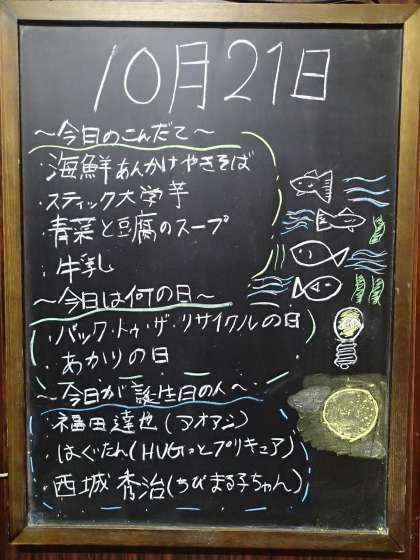 10月21日
～今日のこんだて～
・海鮮あんかけやきそば
・スティック大学芋
・青菜と豆腐のスープ
・牛乳
～今日は何の日～
・バック・トゥ・ザ・リサイクルの日
・あかりの日
～今日が誕生日の人～
・福田達也(アオアシ)
・はぐたん(HUGっとプリキュア)
・西城秀治(ちびまる子ちゃん)